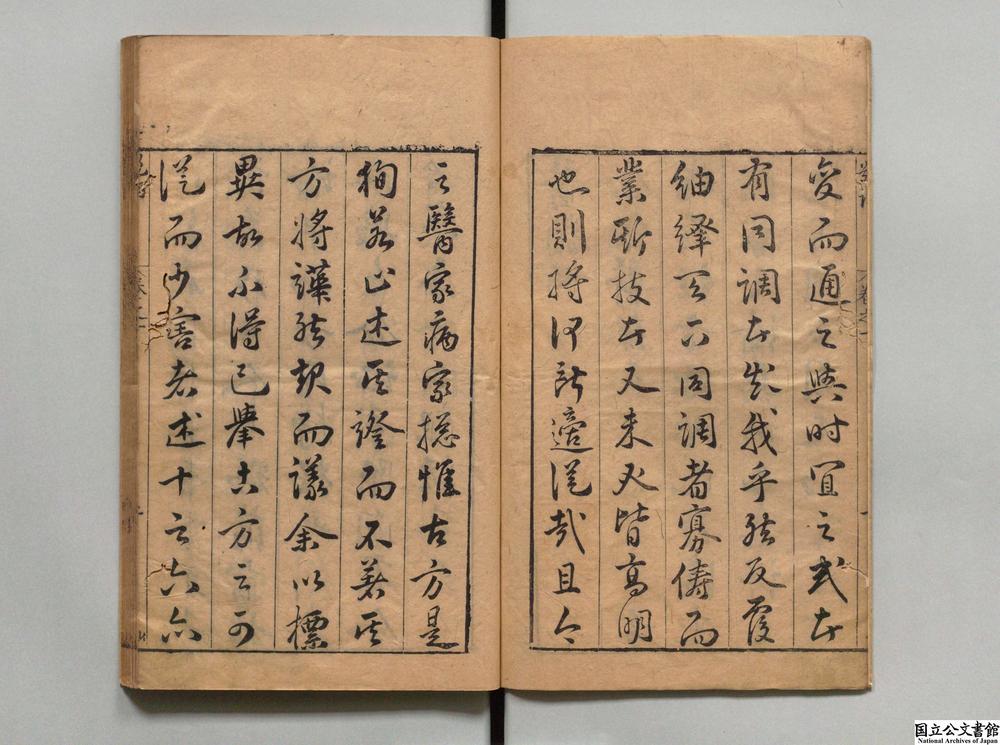 變而通之與時宜之或者
有同調者如我乎然反覆
紬繹天下同調者寡儔而
業斯技者又未必皆高明
也則將何所適從哉且今
之醫家病家摠惟古方是
狥若止述其證而不著其
方將譁然起而議余以標
異故不得已舉古方之可
從而少害者述十之六
国立公文書館
National Archives of Japan